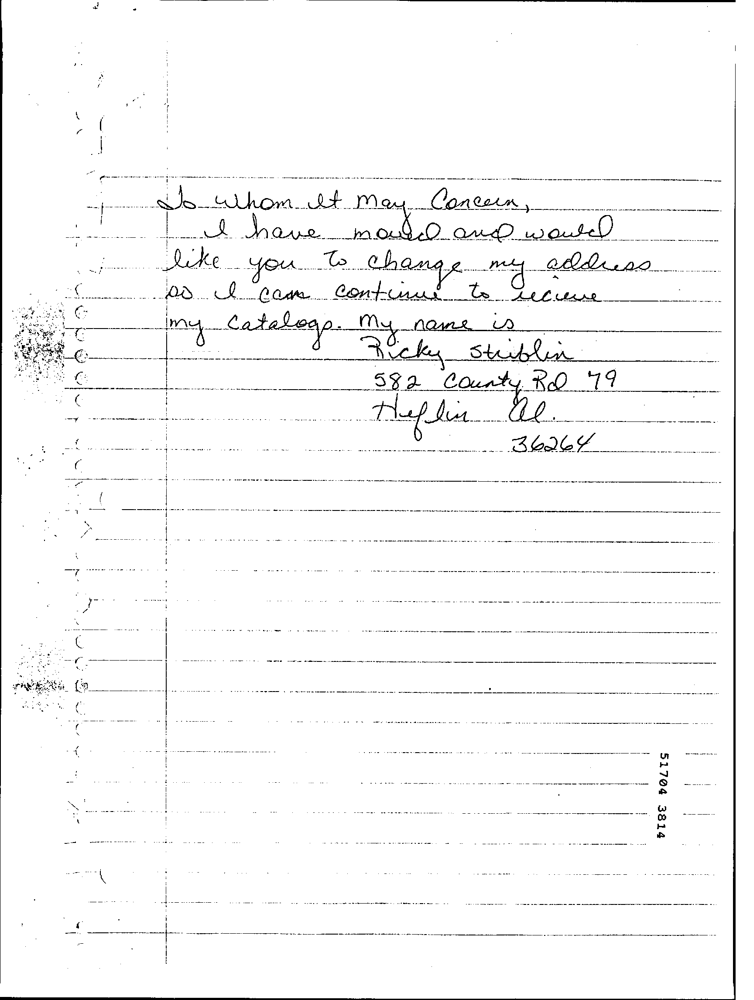 To Whom It May Concern,
I have moved and would
like you to change my address
so I can continue to recieve
my catalogs. My name is
Ricky Striblin
582 County Rd 79
Heflin Al.
36264
51704 3814